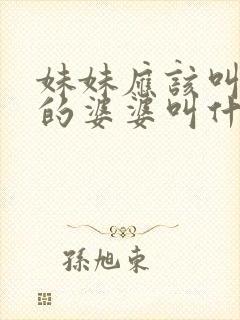 妹妹應該叫
的婆婆叫什
孫旭東